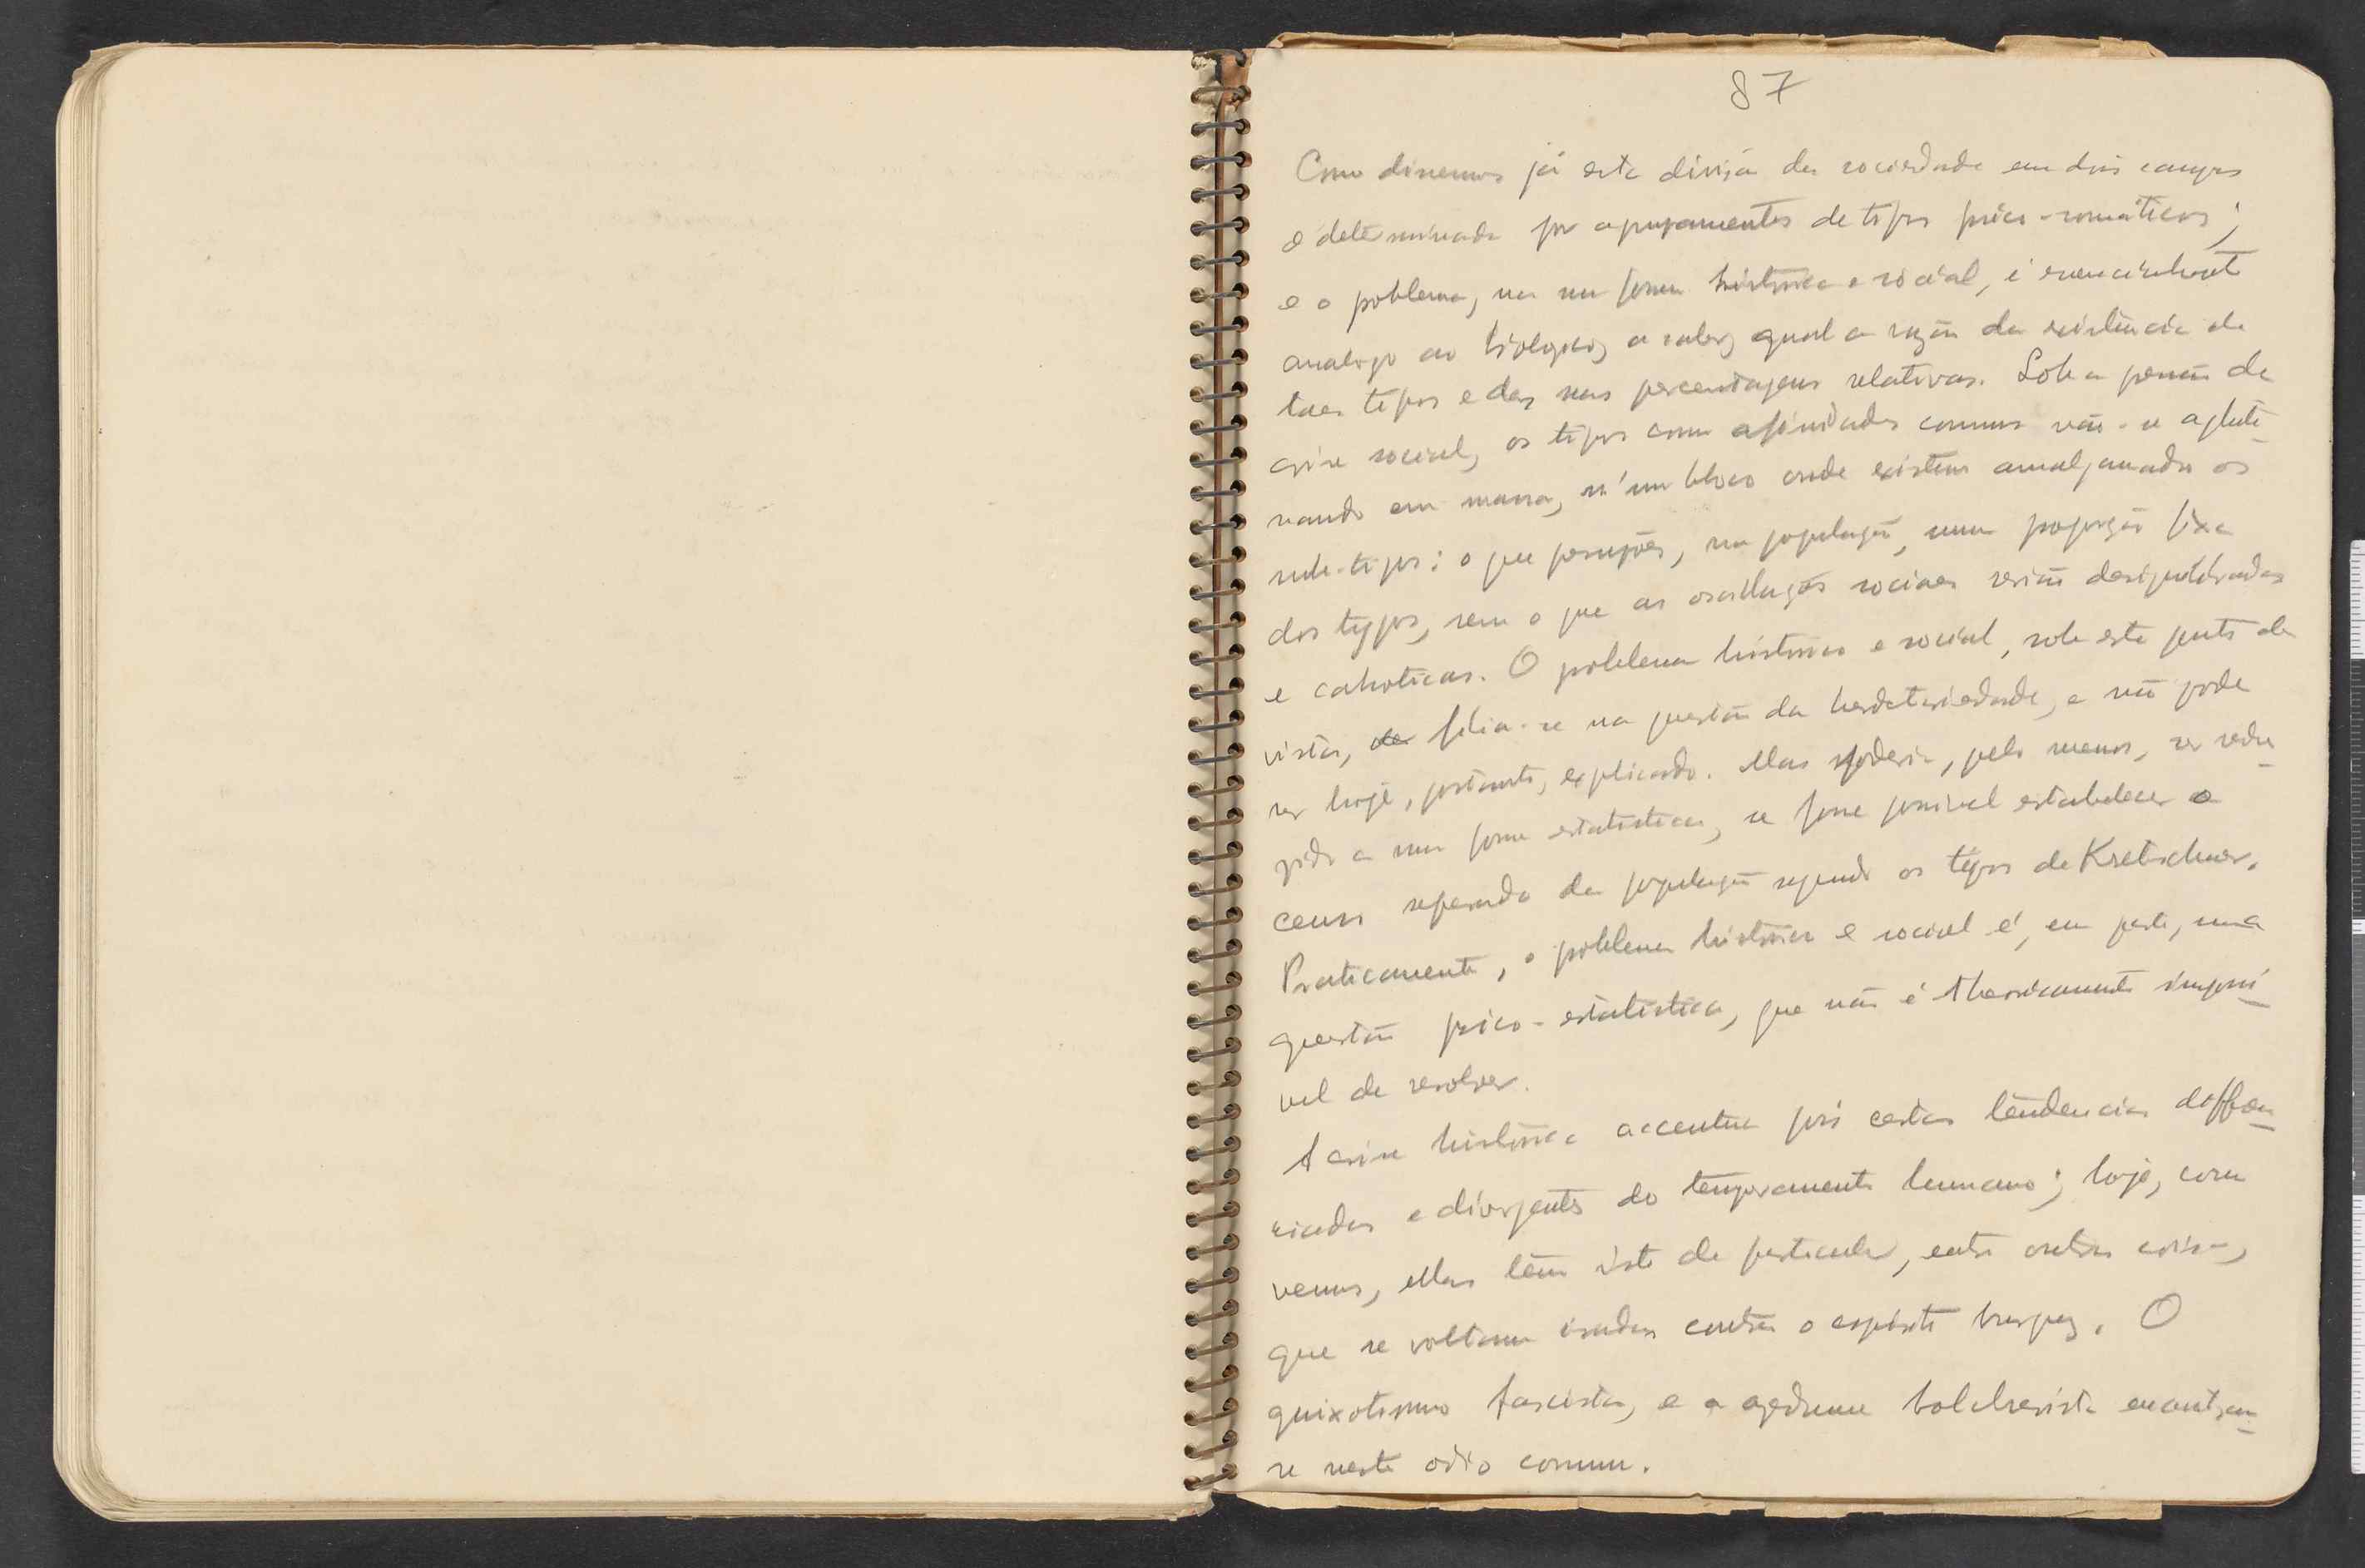 87
Como dissemos já esta divisão da sociedade em dois campos
é determinada por agrupamentos de tipos psico-somáticos;
e o problema, na sua forma histórica e social, é essencialmente
analogo ao biologico, a saber, qual a razão da existência de
taes tipos e das suas percentagens relativas. Sob a pressão da
crise social, os tipos com afinidades comuns vão-se agluti-
nando em massa, n'um bloco onde existem amalgamados os
sub-tipos: o que pressupõe, na população, uma proporção fixa
dos typos, sem o que as oscillações sociaes seriam desiquilibradas
e cahoticas. O problema historico e social, sob este ponto de
vista, filia-se na questão da hereditariedade, e não pode
ser hoje, portanto, explicado. Mas poderia, pelo menos, ser redu-
zido a uma forma estatistica, se fosse possivel estabelecer o
censo separado da população segundo os tipos de Kretschmer.
Praticamente, o problema histórico e social é, em parte, uma
questão psico-estatistica, que não é theoricamente impossi-
vel de resolver.
A crise histórica accentua pois certas tendencias differen-
ciadas e divergentes do temperamento humano; hoje, como
vemos, ellas têm isto de particular, entre outras coisas,
que se voltam iradas contra o espirito burguez. O
quixotismo fascista, e o azedume bolchevista encontram-
se neste odio comum.